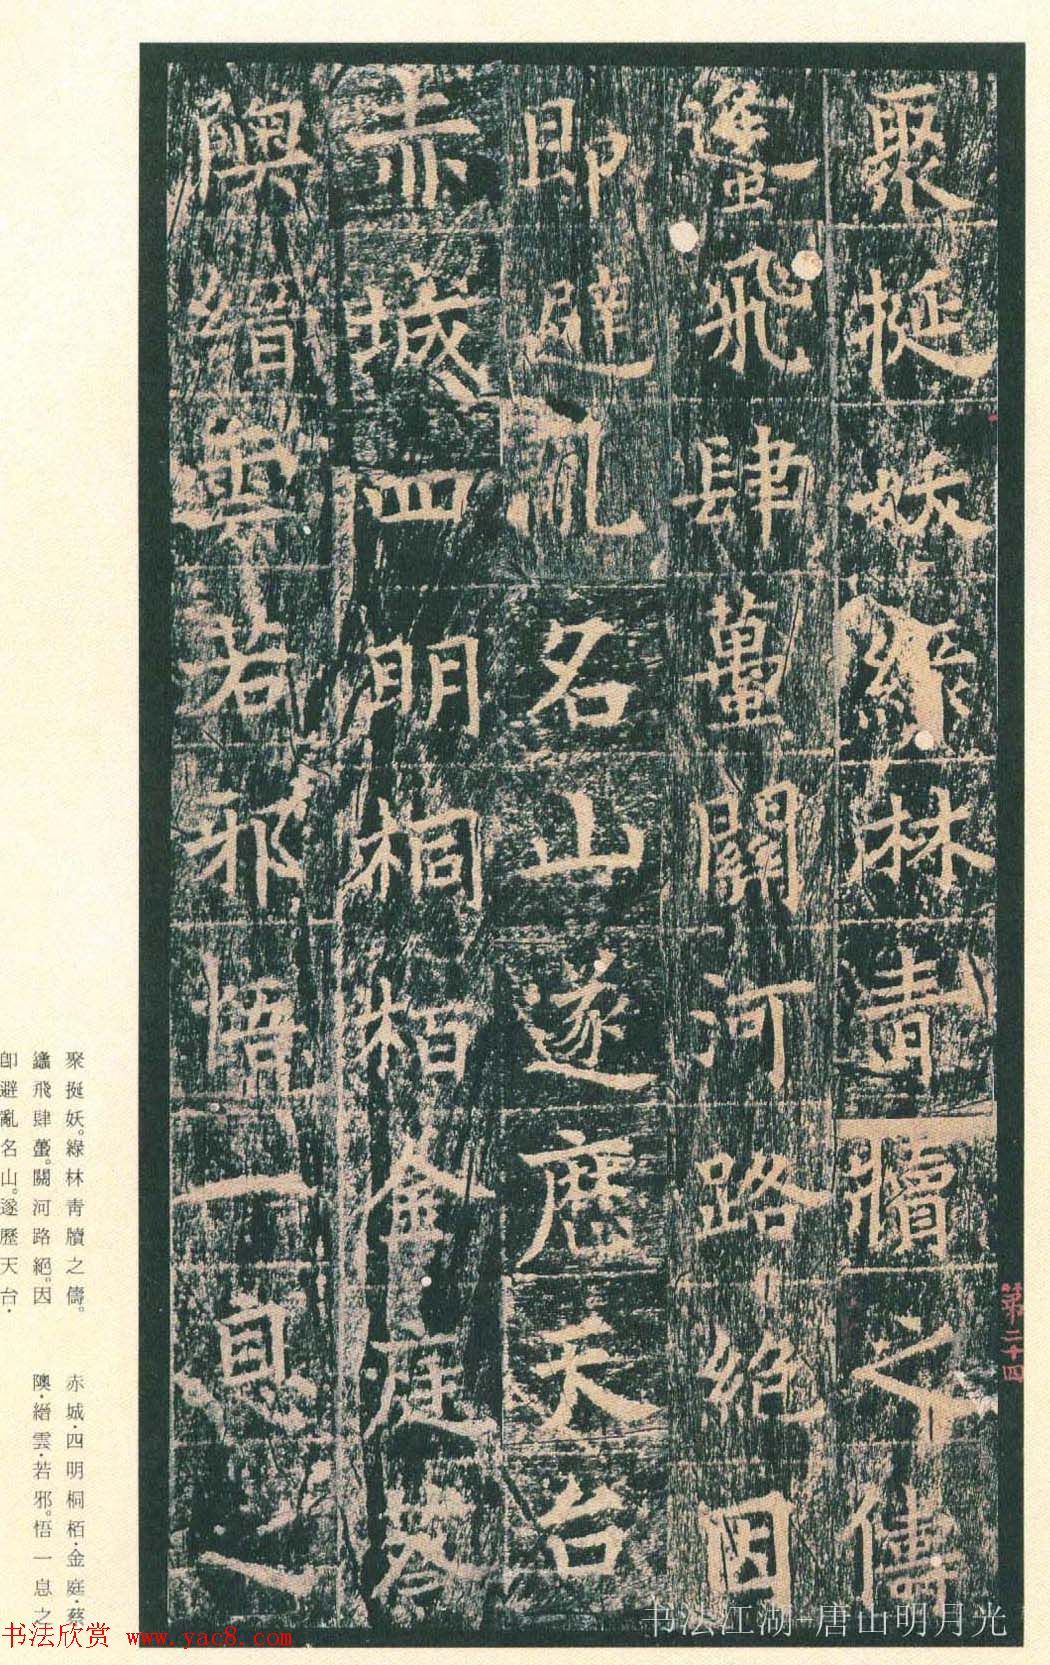 聚挻妖綠林青犢之儔
蠭飛肆蠆關河路絕因
即避亂名山遂歷天台
赤城四明桐栢金庭蔡
隩縉雲若邪悟一息之
第二十四
聚挻妖。綠林青犢之儔。
蠭飛肆蠆。關河路絕。因
即避亂名山。遂歷天台·
赤城·四明桐栢·金庭·蔡
隩·縉雲·若邪。悟一息之
书法欣赏 www.yac8.com
书法江湖-唐山明月光